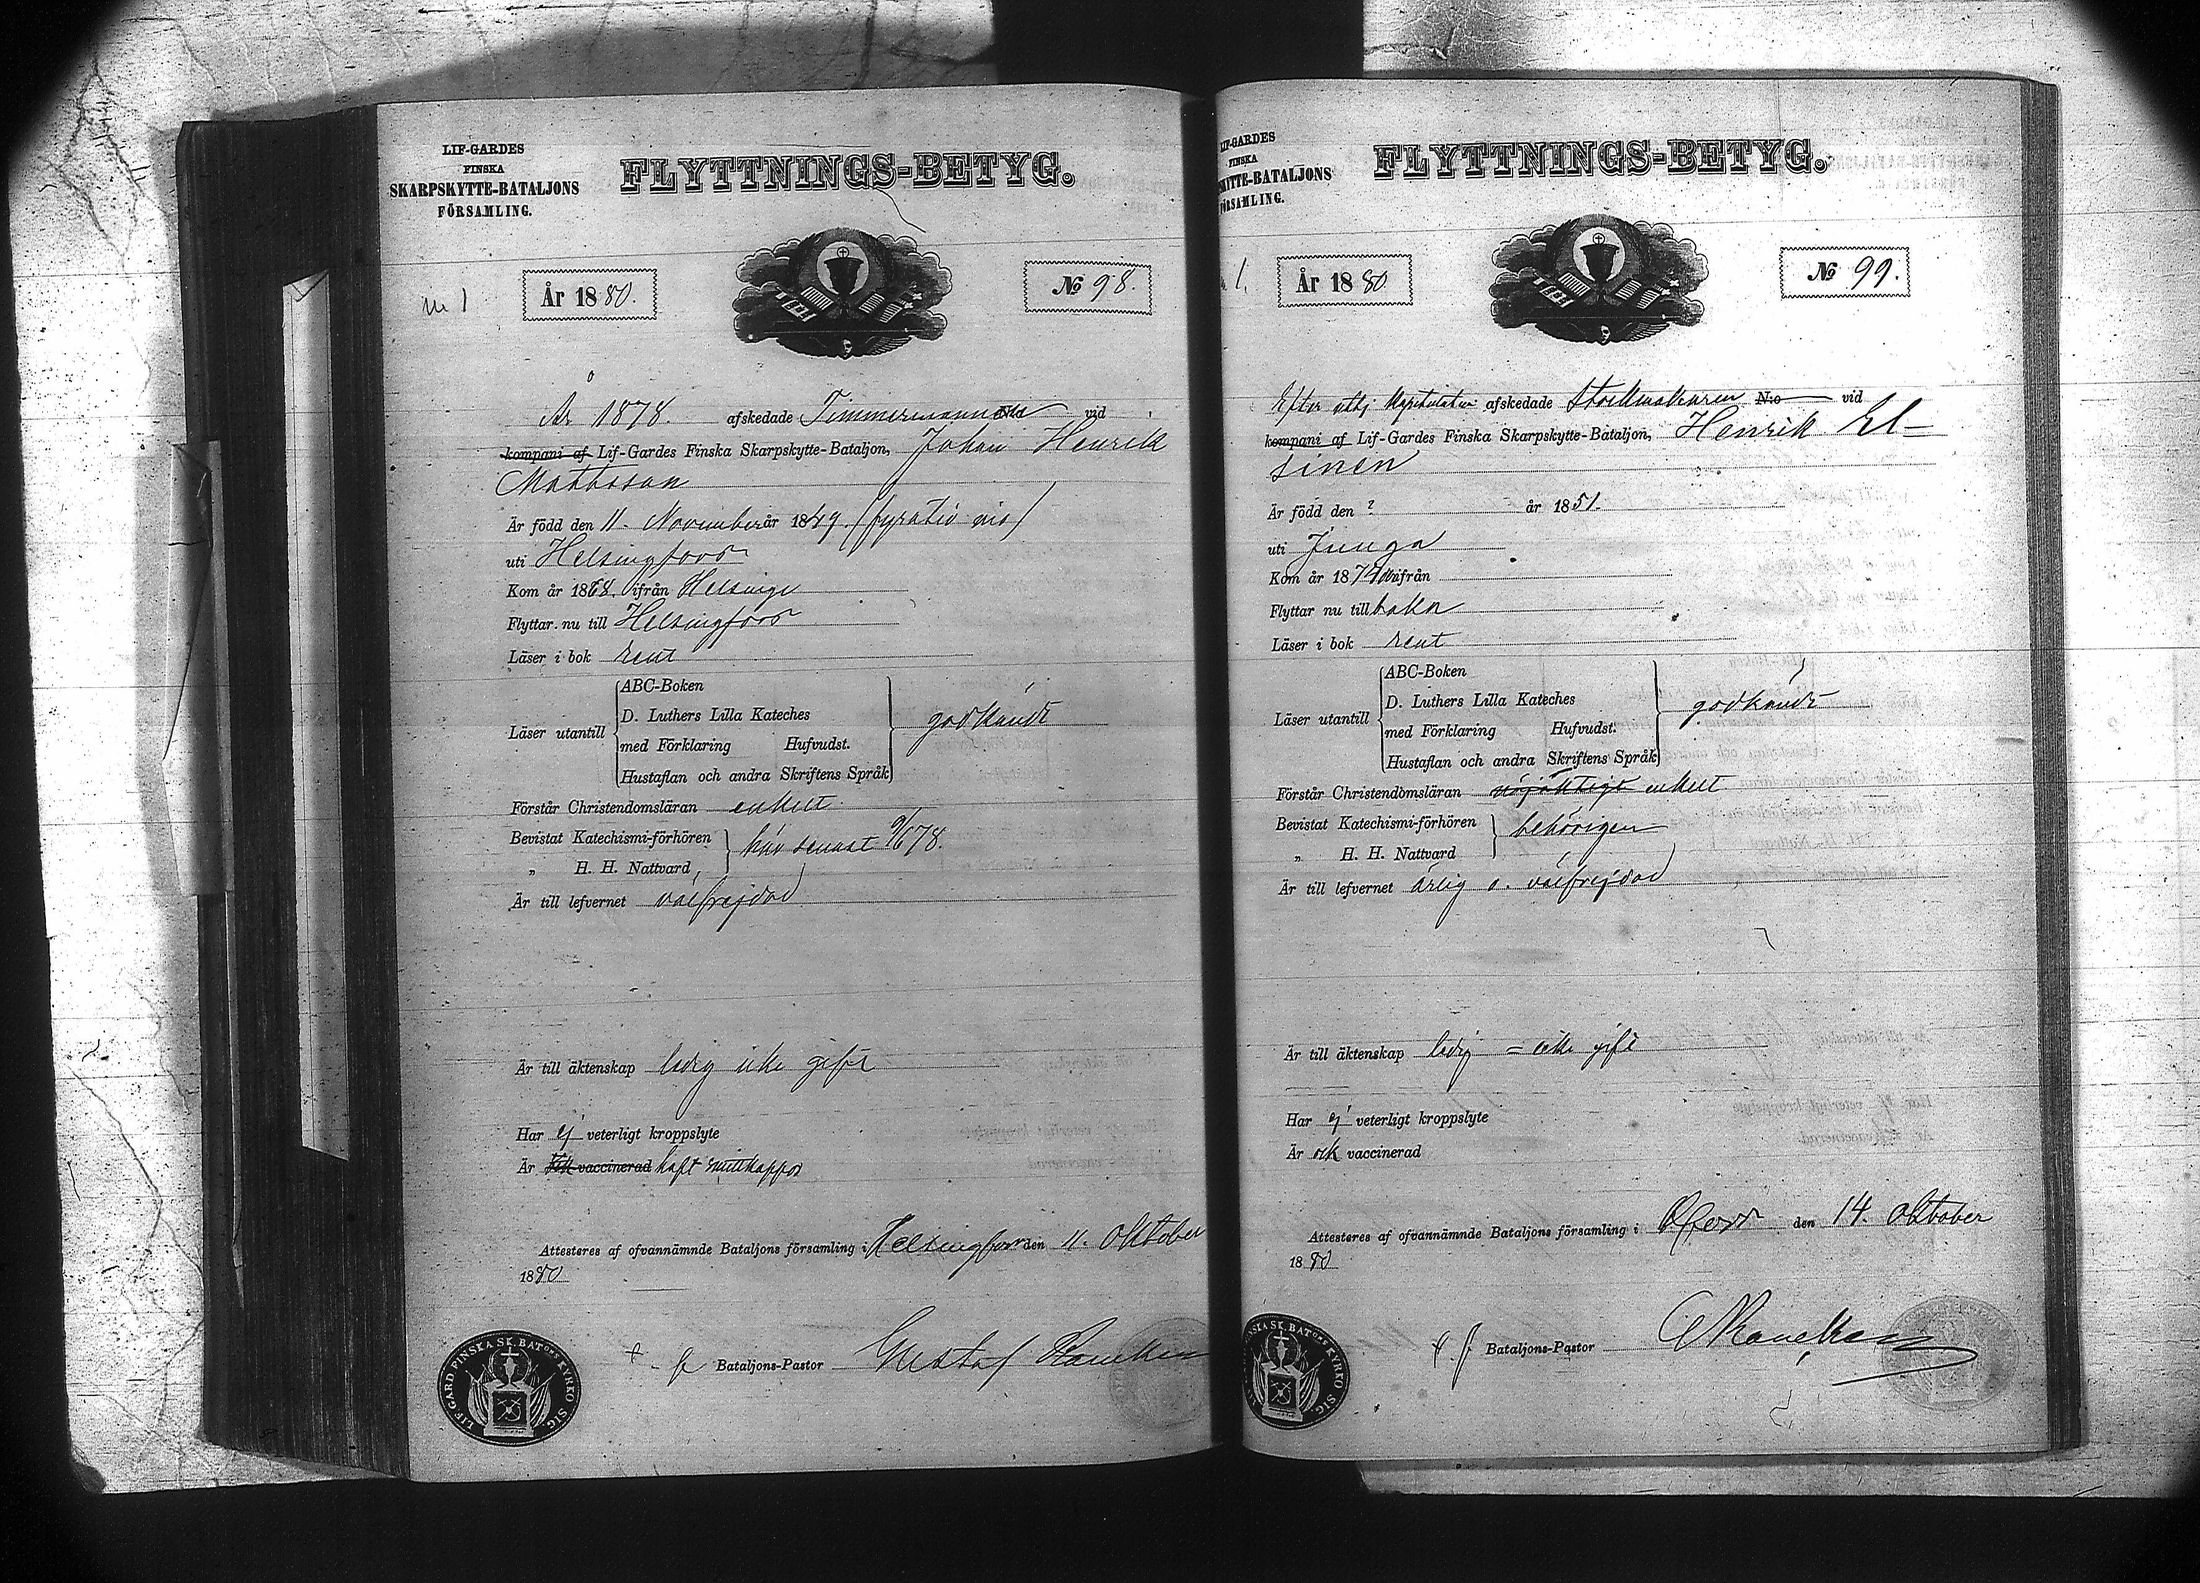 LIF-GARDES
FINSKA
SKARPSKYTTE-BATALJONS
FÖRSAMLING.
FLYTTNINGS-BETYG.
m 1
År 1880.
№ 98.
År 1878. afskedade Timmermannen vid
kompani af Lif-Gardes Finska Skarpskytte-Bataljon, Johan Henrik
Mattsson
Är född den 11. November år 1849. (fyratio nio)
uti Helsingfors
Kom år 1868. ifrån Helsinge
Flyttar nu till Helsingfors
Läser i bok rent
Läser utantill
ABC-Boken
D. Luthers Lilla Kateches
med Förklaring Hufvudst.
Hustaflan och andra Skriftens Språk
godkändt
Förstår Christendomsläran enkelt
Bevistat Katechismi-förhören
„ H. H. Nattvard
här senast 9/6 78.
Är till lefvernet välfrejdad
Är till äktenskap ledig icke gift
Har ej veterligt kroppslyte
Är vaccinerad haft smittkoppor
Attesteres af ofvannämnde Bataljons församling i Helsingfors den 11. Oktober
1880
t. f. Bataljons-Pastor Gustaf
LIF. GARD. FINSKA SK. BAT:ONS KYRKO SIG.
LIF-GARDES
FINSKA
SKYTTE-BATALJONS
FÖRSAMLING.
FLYTTNINGS-BETYG.
1.
År 1880
№ 99.
Efter utstj kapitulation afskedade Stockmakaren N:o vid
kompani af Lif-Gardes Finska Skarpskytte-Bataljon, Henrik El-
sinen
Är född den ? år 1851.
uti Junga
Kom år 187 ifrån
Flyttar nu tillbaka
Läser i bok rent
Läser utantill
ABC-Boken
D. Luthers Lilla Kateches
med Förklaring Hufvudst.
Hustaflan och andra Skriftens Språk
godkändt
Förstår Christendomsläran nöjaktigt enkelt
Bevistat Katechismi-förhören
„ H. H. Nattvard
behörigen
Är till lefvernet ärlig o. välfrejdad
Är till äktenskap ledig = icke gift
Har ej veterligt kroppslyte
Är ock vaccinerad
Attesteres af ofvannämnde Bataljons församling i den 14. Oktober
1880
t. f. Bataljons-Pastor
FINSKA SK. BAT:ONS KYRKO SIG.